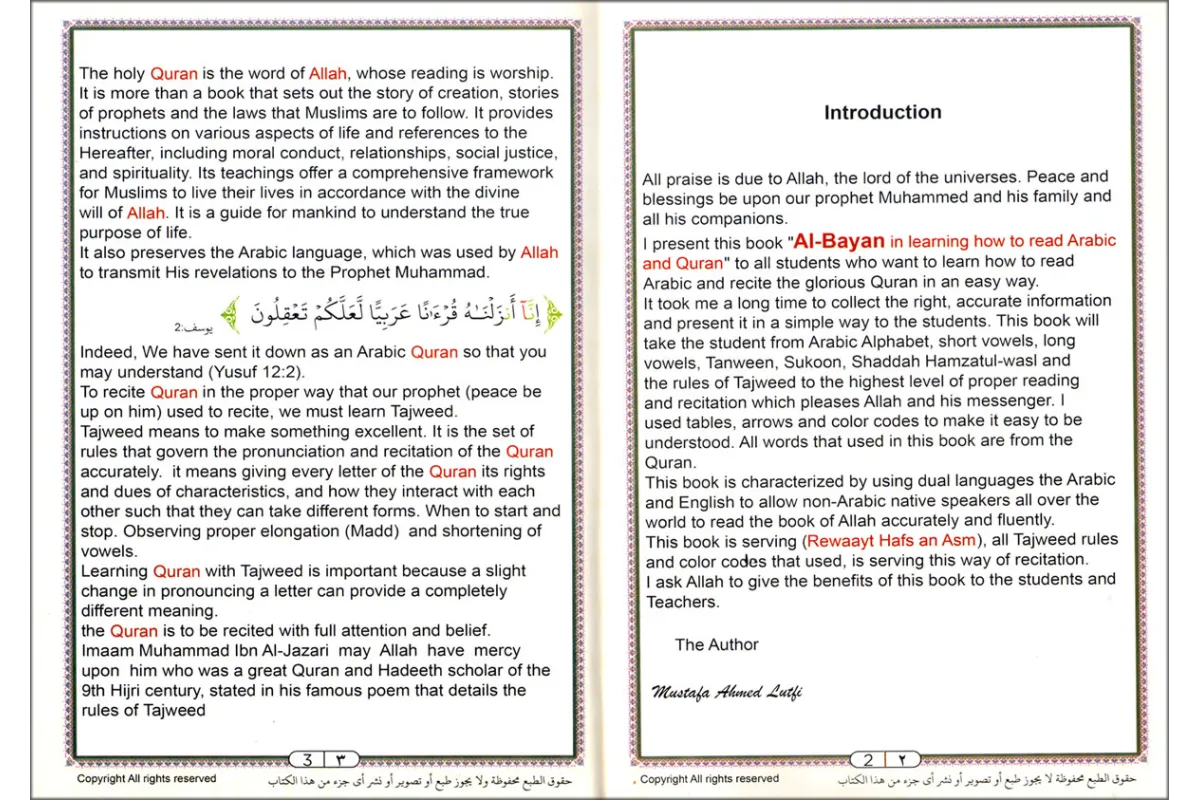 Introduction
All praise is due to Allah, the lord of the universes. Peace and
blessings be upon our prophet Muhammed and his family and
all his companions.
I present this book "Al-Bayan in learning how to read Arabic
and Quran" to all students who want to learn how to read
Arabic and recite the glorious Quran in an easy way.
It took me a long time to collect the right, accurate information
and present it in a simple way to the students. This book will
take the student from Arabic Alphabet, short vowels, long
vowels, Tanween, Sukoon, Shaddah Hamzatul-wasl and
the rules of Tajweed to the highest level of proper reading
and recitation which pleases Allah and his messenger. I
used tables, arrows and color codes to make it easy to be
understood. All words that used in this book are from the
Quran.
This book is characterized by using dual languages the Arabic
and English to allow non-Arabic native speakers all over the
world to read the book of Allah accurately and fluently.
This book is serving (Rewaayt Hafs an Asm), all Tajweed rules
and color codes that used, is serving this way of recitation.
I ask Allah to give the benefits of this book to the students and
Teachers.
The Author
Mustafa Ahmed Lutfi
2 | ٢
Copyright All rights reserved حقوق الطبع محفوظة لا يجوز طبع أو تصوير أو نشر أى جزء من هذا الكتاب
The holy Quran is the word of Allah, whose reading is worship.
It is more than a book that sets out the story of creation, stories
of prophets and the laws that Muslims are to follow. It provides
instructions on various aspects of life and references to the
Hereafter, including moral conduct, relationships, social justice,
and spirituality. Its teachings offer a comprehensive framework
for Muslims to live their lives in accordance with the divine
will of Allah. It is a guide for mankind to understand the true
purpose of life.
It also preserves the Arabic language, which was used by Allah
to transmit His revelations to the Prophet Muhammad.
إِنَّآ أَنزَلْنَـٰهُ قُرْءَٰنًا عَرَبِيًّا لَّعَلَّكُمْ تَعْقِلُونَ يوسف:2
Indeed, We have sent it down as an Arabic Quran so that you
may understand (Yusuf 12:2).
To recite Quran in the proper way that our prophet (peace be
up on him) used to recite, we must learn Tajweed.
Tajweed means to make something excellent. It is the set of
rules that govern the pronunciation and recitation of the Quran
accurately. it means giving every letter of the Quran its rights
and dues of characteristics, and how they interact with each
other such that they can take different forms. When to start and
stop. Observing proper elongation (Madd) and shortening of
vowels.
Learning Quran with Tajweed is important because a slight
change in pronouncing a letter can provide a completely
different meaning.
the Quran is to be recited with full attention and belief.
Imaam Muhammad Ibn Al-Jazari may Allah have mercy
upon him who was a great Quran and Hadeeth scholar of the
9th Hijri century, stated in his famous poem that details the
rules of Tajweed
3 | ٣
Copyright All rights reserved حقوق الطبع محفوظة ولا يجوز طبع أو تصوير أو نشر أى جزء من هذا الكتاب